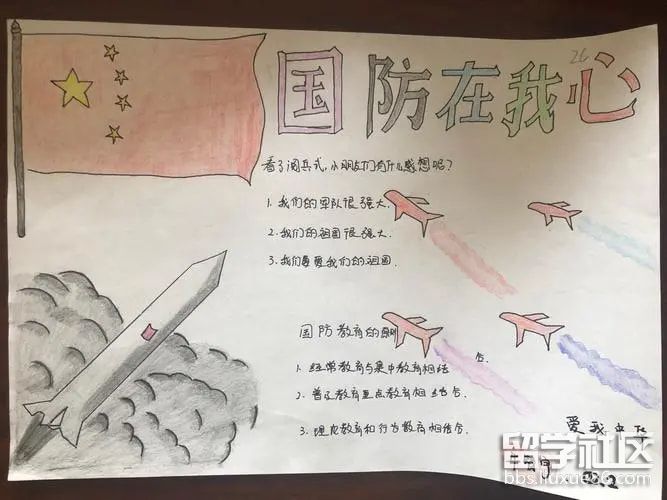 国防在我心
26
看了阅兵式,小朋友们有什么感想呢?
1. 我们的军队很强大.
2. 我们的祖国很强大.
3. 我们要爱我们的祖国.
国防教育的原则
1. 经常教育与集中教育相结合.
2. 普及教育重点教育相结合.
3. 理论教育和行为教育相结合.
爱我中华
留学社区
bbs.liuxue86.com